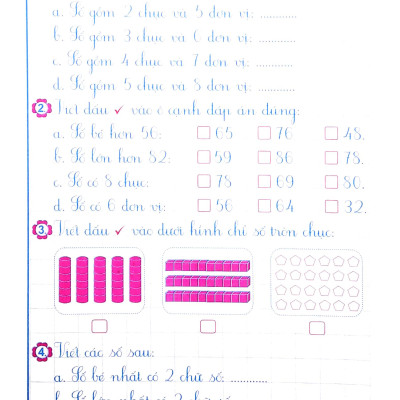 a. Số gồm 2 chục và 5 đơn vị: ............
b. Số gồm 3 chục và 6 đơn vị: ............
c. Số gồm 4 chục và 7 đơn vị: ............
d. Số gồm 5 chục và 8 đơn vị: ............
2. Viết dấu ✓ vào ô cạnh đáp án đúng:
a. Số bé hơn 56: □ 65 □ 76 □ 48.
b. Số lớn hơn 82: □ 59 □ 86 □ 78.
c. Số có 8 chục: □ 78 □ 69 □ 80.
d. Số có 6 đơn vị: □ 56 □ 64 □ 32.
3. Viết dấu ✓ vào dưới hình chỉ số tròn chục:
4. Viết các số sau:
a. Số bé nhất có 2 chữ số: ............
b. Số lớn nhất có 2 chữ số: